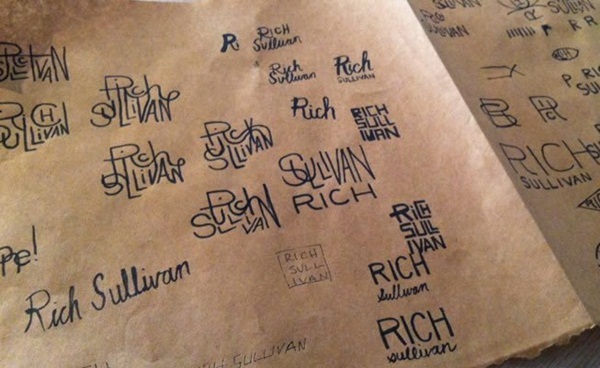 Ri
RICH
Sullivan
SULLIVAN
RICH
SULLIVAN
Rich
Sullivan
Rich
SULLIVAN
RICH
SULLIVAN
RICH
SULLIVAN
Rich
RICH
SULL
IVAN
RICH
SULLIVAN
RICH
SULLIVAN
SULLIVAN
RICH
RICH
SULLIVAN
RICH
SULLIVAN
RICH
SULL
IVAN
RICH
SULL
IVAN
Rich Sullivan
RICH
Sullivan
RICH
Sullivan
SULLIVAN